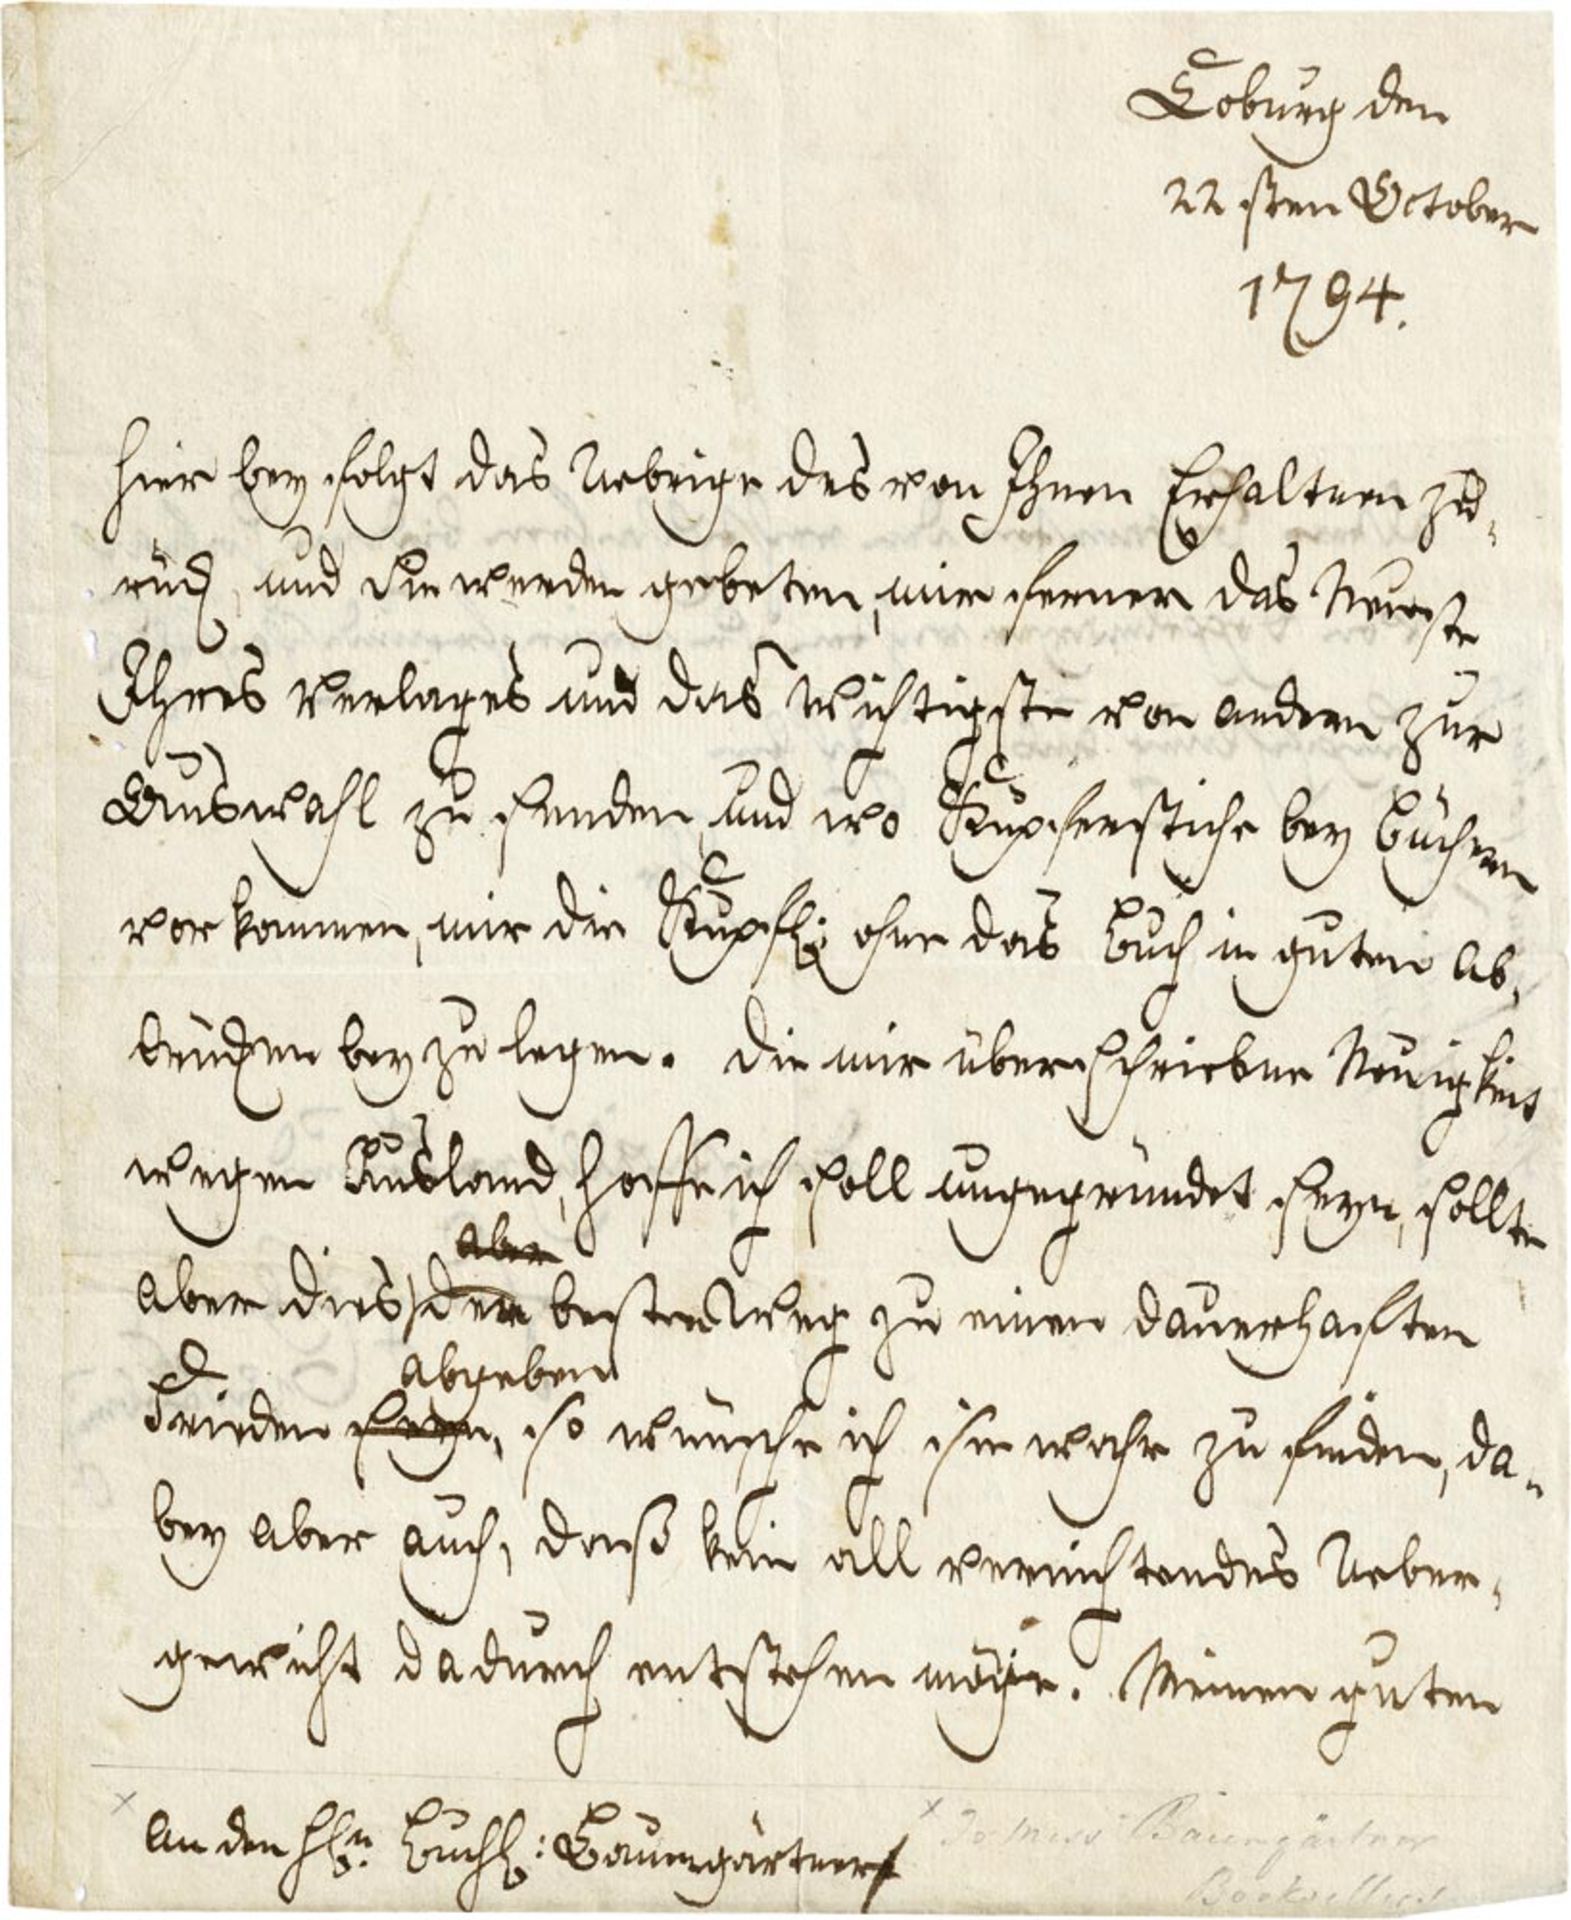 Coburg den
22 sten October
1794.
Hier bey folgt das Uebrige des von Ihnen Erhaltenen zu-
rück, und Sie werden gebeten, mir ferner das Neueste
Ihres Verlages und das Wichtigste von andern zur
Auswahl zu senden, und wo Kupferstiche bey Büchern
vorkommen, mir die Kupfh: ohne das Buch in guten Ab-
drücken bey zu legen. Die mir überschriebne Neuigkeit
wegen Rusland, hoffe ich soll ungegründet seyn, sollte
aber
aber dies den besten Weg zu einen dauerhaften
abgeben
Frieden seyn, so wünsche ich sie wahr zu finden, da-
bey aber auch, daß kein all vernichtendes Ueber-
gewicht dadurch entstehen möge. Meinen guten
An den Hhn. Buchh: Baumgärtner
x To Miss Baumgärtner
Bookseller